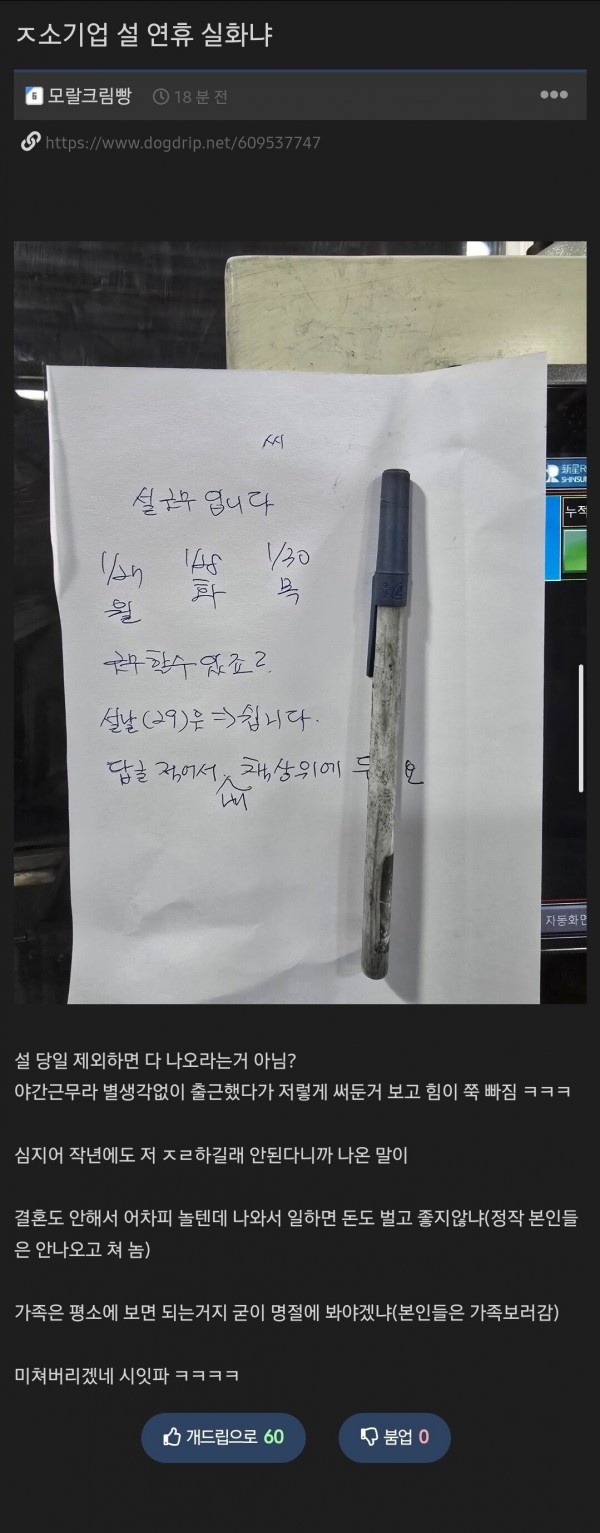 ㅈ소기업 설 연휴 실화냐
6 모랄크림빵 18 분 전
https://www.dogdrip.net/609537747
씨
설 근무 입니다
1/27 1/28 1/30
월 화 목
근무 할수 있죠?
설날(29)은 => 쉽니다.
답글 적어서 내 책상위에
SHINSUN
누적
자동화면
설 당일 제외하면 다 나오라는거 아님?
야간근무라 별생각없이 출근했다가 저렇게 써둔거 보고 힘이 쭉 빠짐 ㅋㅋㅋ
심지어 작년에도 저 ㅈㄹ하길래 안된다니까 나온 말이
결혼도 안해서 어차피 놀텐데 나와서 일하면 돈도 벌고 좋지않냐(정작 본인들
은 안나오고 쳐 놈)
가족은 평소에 보면 되는거지 굳이 명절에 봐야겠냐(본인들은 가족보러감)
미쳐버리겠네 시잇파 ㅋㅋㅋㅋ
개드립으로 60 붐업 0